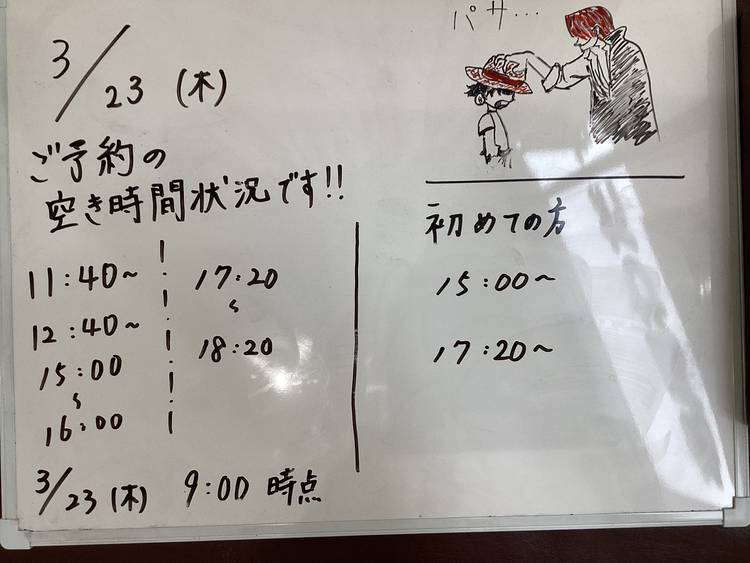 3/23 (木)
ご予約の
空き時間状況です!!
11:40~
12:40~
15:00
~
16:00
17:20
~
18:20
3/23 (木) 9:00 時点
パサ...
初めての方
15:00~
17:20~